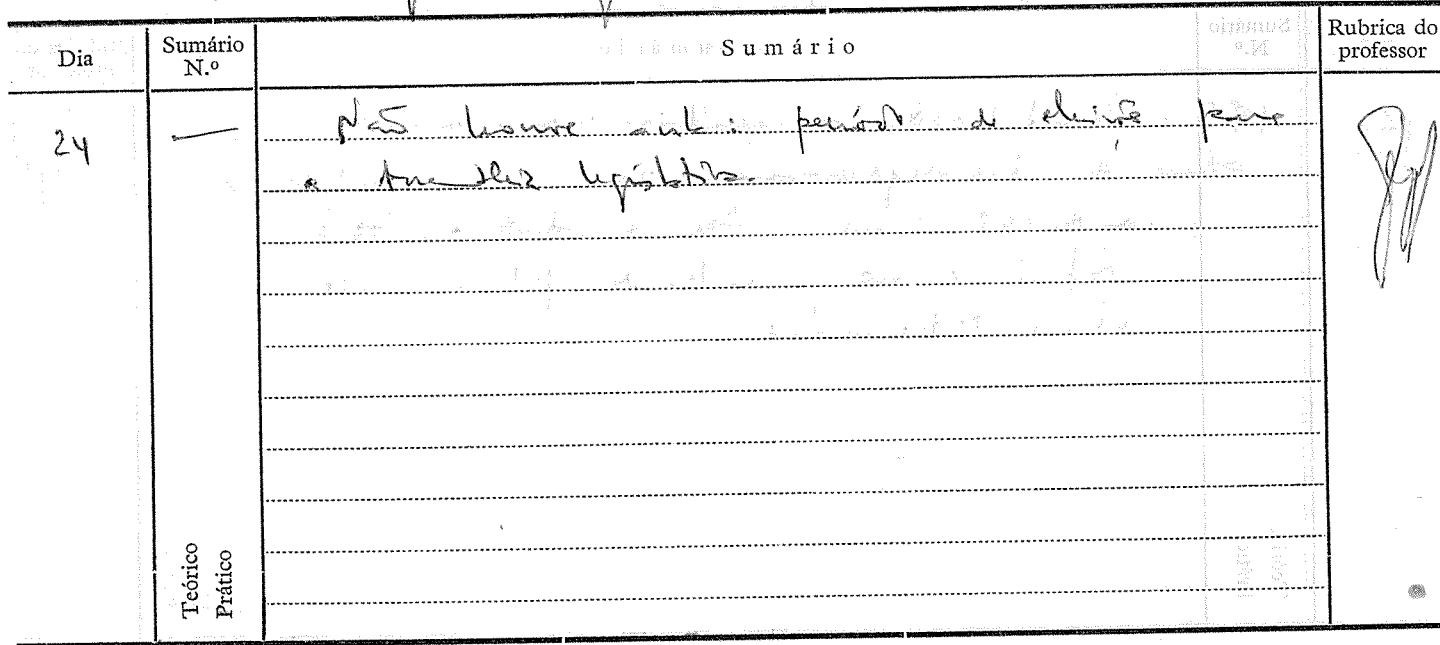 Dia
Sumário N.º
Sumário
Rubrica do professor
24
—
Não houve aula: período de eleição para
a Assembleia legislativa.
Teórico
Prático